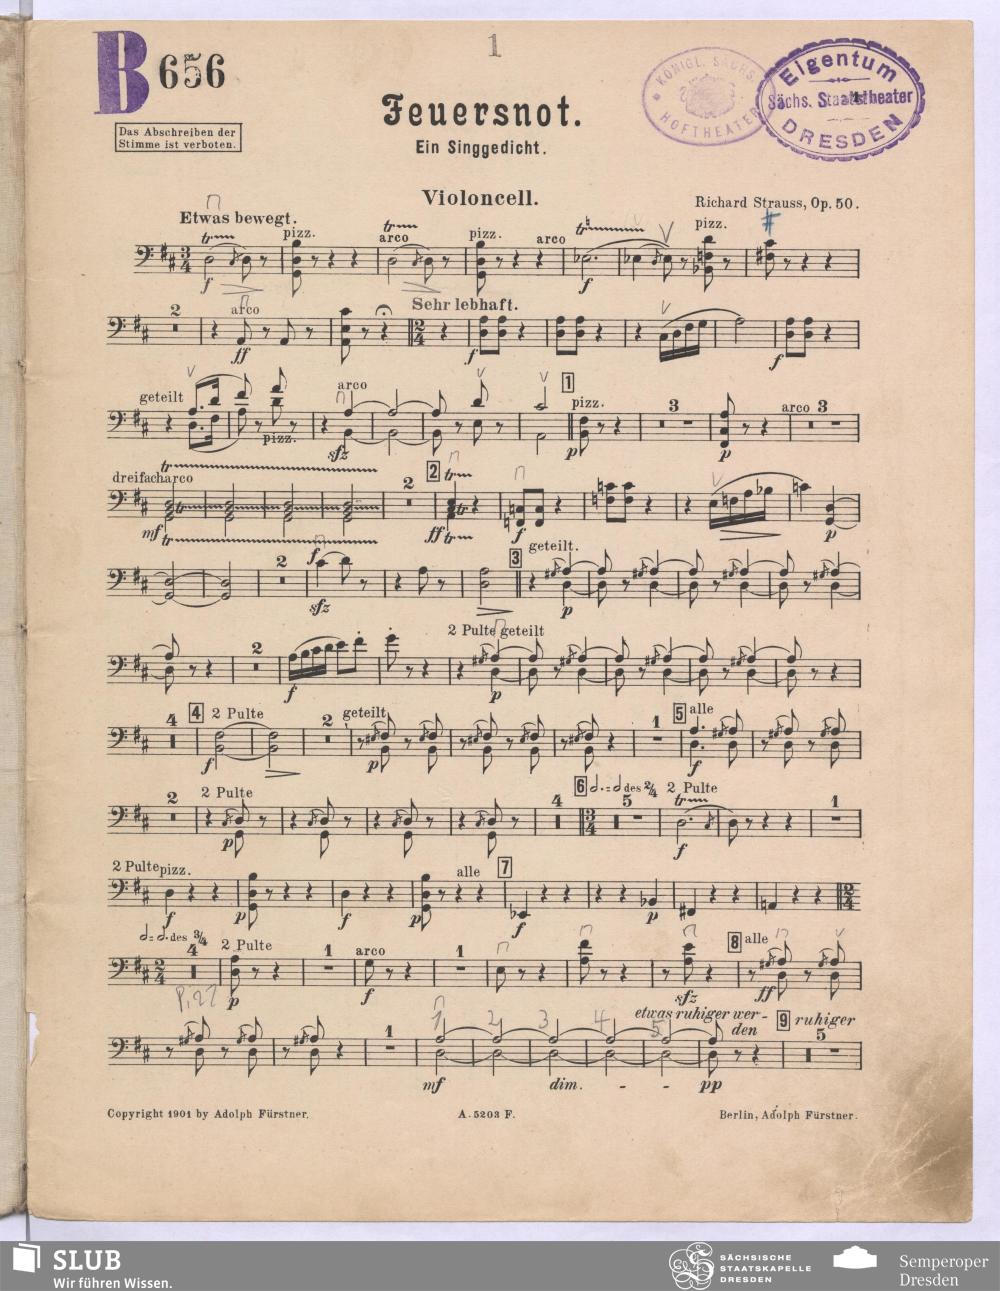 1
B 656
KÖNIGL. SÄCHS. HOFTHEATER
Eigentum
Sächs. Staatstheater
DRESDEN
Das Abschreiben der
Stimme ist verboten.
Feuersnot.
Ein Singgedicht.
Violoncell.
Richard Strauss, Op. 50.
Etwas bewegt.
tr pizz. tr arco pizz. arco tr pizz.
3 4
f f
2 arco Sehr lebhaft.
2 4
ff f f
geteilt arco 1 pizz. 3 arco 3
pizz. sfz p p
tr
dreifach arco 2 2 tr
tr
mf tr ff tr f p
2 f 3 geteilt.
sfz p
2 2 Pulte geteilt
f p
4 4 2 Pulte 2 geteilt 1 5 alle
f p f
2 2 Pulte 4 6 𝅗𝅥. = 𝅗𝅥 des 2/4 5 2 Pulte tr 1
3 4
p f
2 Pulte pizz. alle 7
2 4
f p f p f p
𝅗𝅥 = 𝅗𝅥. des 3/4
4 2 Pulte 1 arco 1 8 alle
2 4
Pizz p f sfz ff
etwas ruhiger wer-
den 9 ruhiger
1 1 2 3 4 5 5
mf dim. - - pp
Copyright 1901 by Adolph Fürstner. A. 5203 F. Berlin, Adolph Fürstner.
SLUB
Wir führen Wissen.
SÄCHSISCHE
STAATSKAPELLE
DRESDEN
Semperoper
Dresden